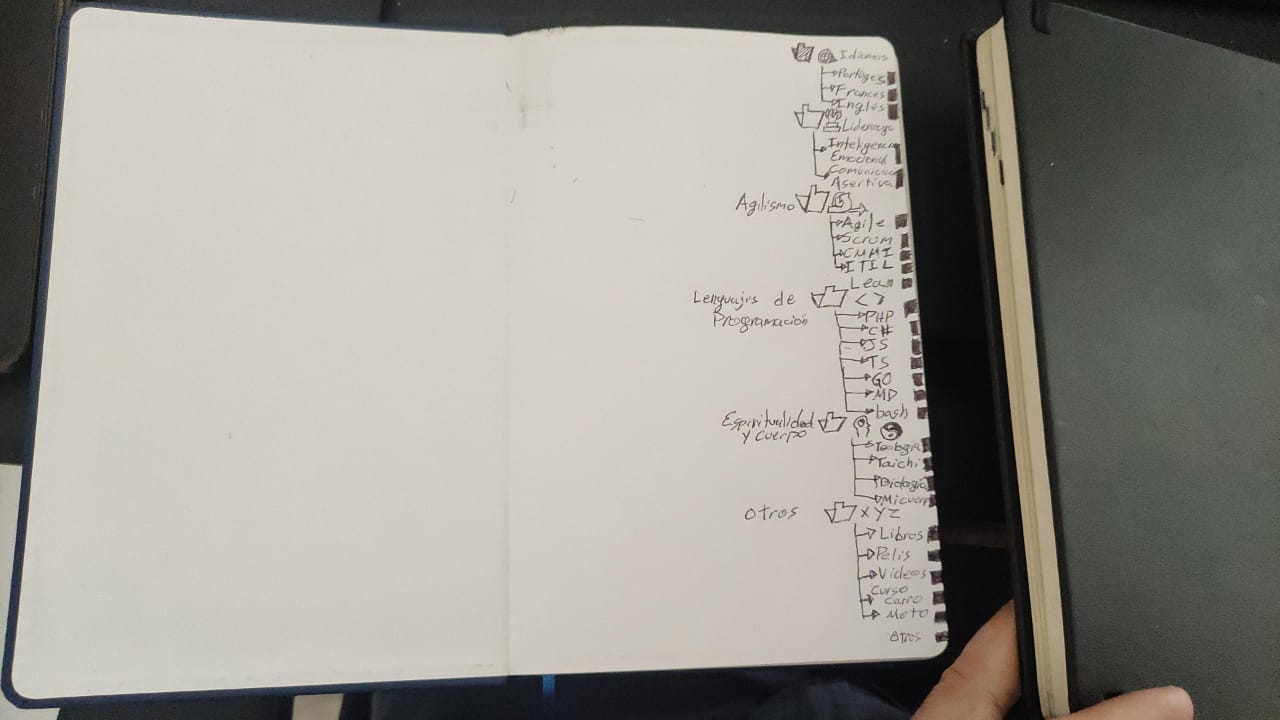 Idiomas
Portuges
Frances
Ingles
Liderazgo
Inteligencia
Emocional
Comunicac
Asertiva
Agilismo
Agile
Scrum
CMMI
ITIL
Lean
Lenguajes de < >
Programación
PHP
C#
JS
TS
GO
MD
bash
Espiritualidad
y Cuerpo
Teologia
Taichi
Biologia
Micuerp
Otros XYZ
Libros
Pelis
Videos
Curso
Carro
Moto
Otros